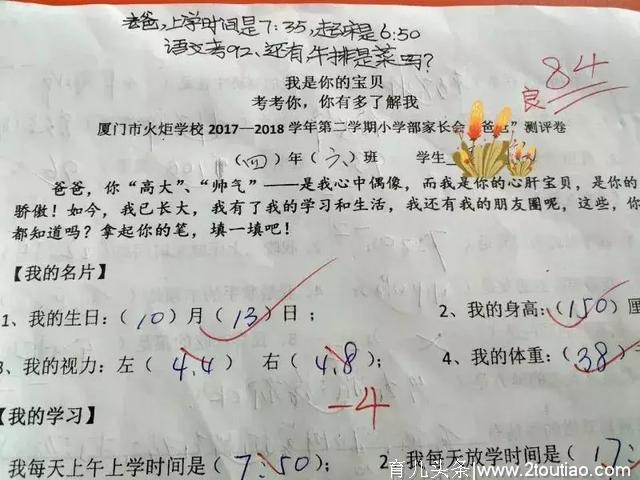 爸爸,上学时间是7:35,起床是6:50
语文考92、还有牛排是菜吗?
84
良
我是你的宝贝
考考你,你有多了解我
厦门市火炬学校2017—2018学年第二学期小学部家长会“爸爸”测评卷
(四)年(六)班 学生
爸爸,你“高大”、“帅气”——是我心中偶像,而我是你的心肝宝贝,是你的
骄傲!如今,我已长大,我有了我的学习和生活,我还有我的朋友圈呢,这些,你
都知道吗?拿起你的笔,填一填吧!
【我的名片】
1、我的生日:(10)月(13)日; 2、我的身高:(150)厘
3、我的视力:左(4.4) 右(4.8); 4、我的体重:(38)
-4
【我的学习】
我每天上午上学时间是(7:50); 2、我每天放学时间是(17:
育儿头条|www.2toutiao.com